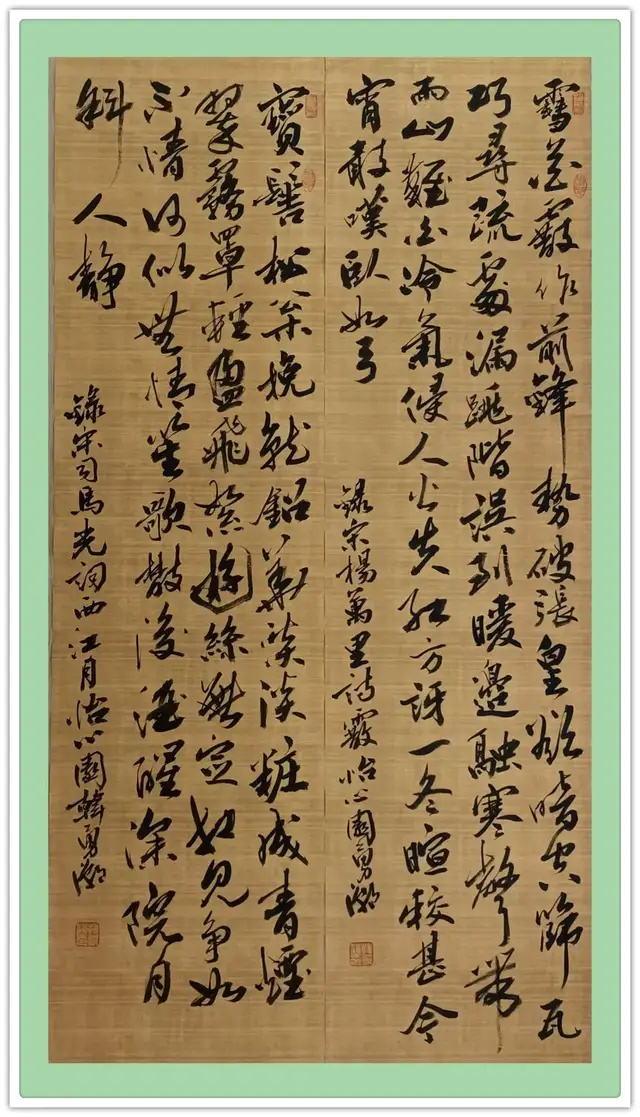 雪花霰作前鋒勢破張皇欲暗空篩瓦
巧尋疏處漏跳階誤到暖邊融寒聲帶
雨山難白冷氣侵人火失紅方訝一冬暄較甚今
宵敢嘆臥如弓
錄宋楊萬里詩霰怡心園勇
寶髻松松挽就鉛華淡淡粧成青煙
翠霧罩輕盈飛絮游絲無定相見爭如
不情何似無情笙歌散後酒醒深院月
斜人靜
錄宋司馬光詞西江月怡心園韓勇